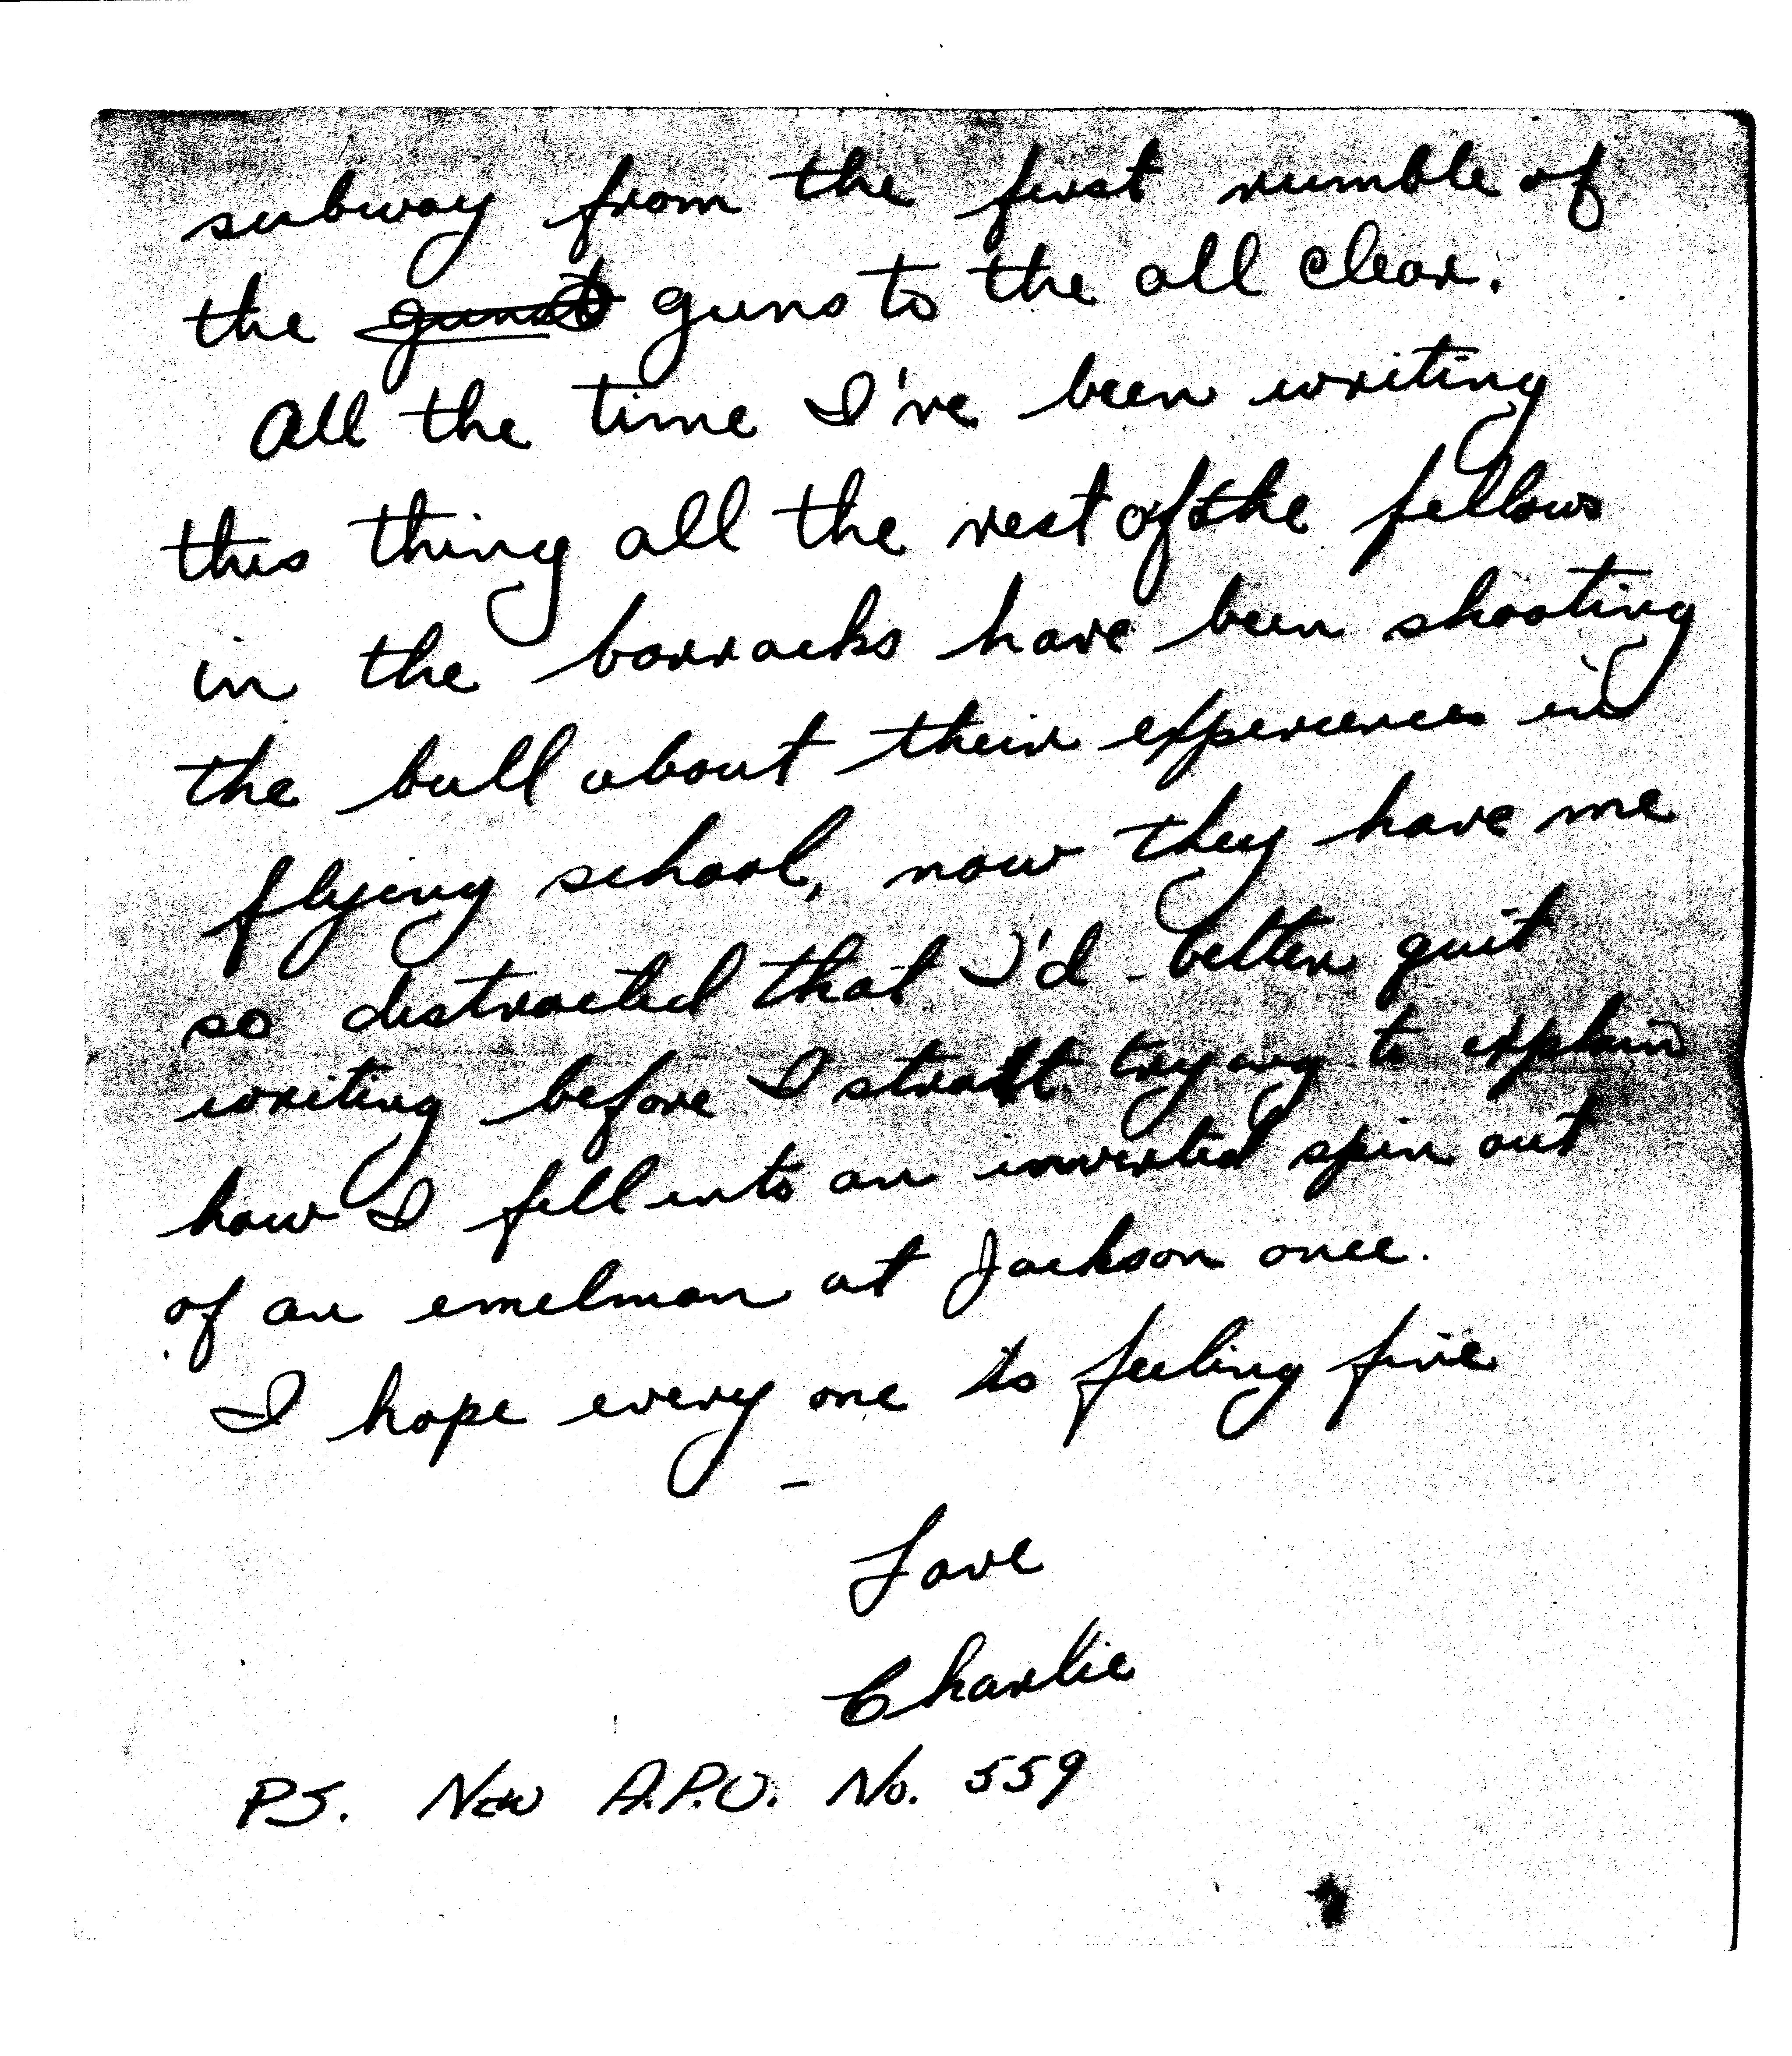 subway from the first rumble of
the guns to the all clear.
All the time I've been writing
this thing all the rest of the fellows
in the barracks have been shooting
the bull about their experiences in
flying school, now they have me
so distracted that I'd better quit
writing before I stratt trying to explain
how I fell into an inverted spin out
of an emelman at Jackson once.
I hope every one is feeling fine
–
Love
Charlie
P.S. New A.P.O. No. 559